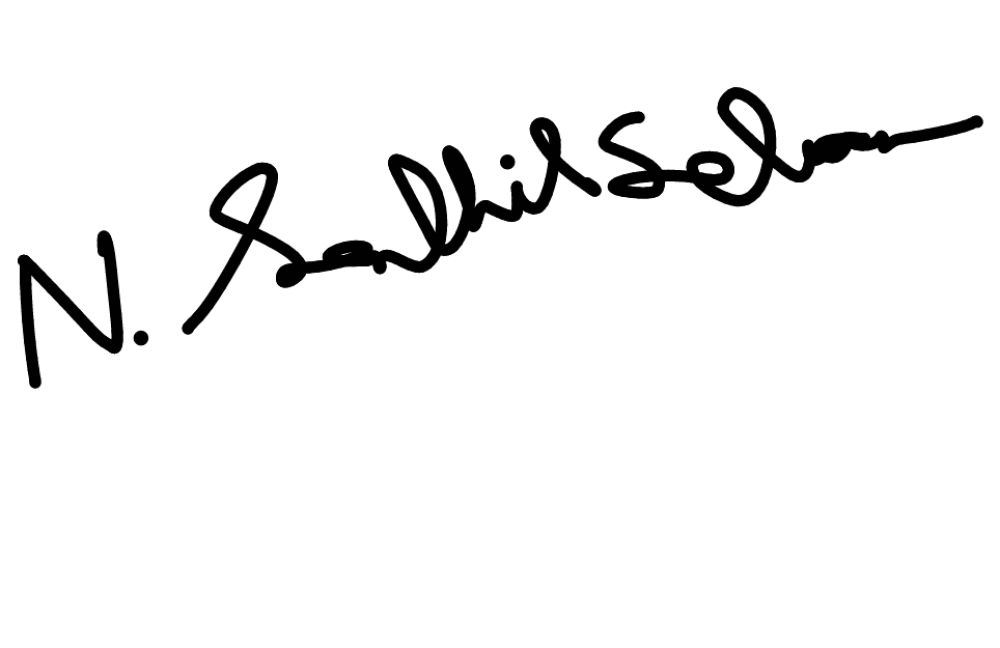 N. Senthil Selvan